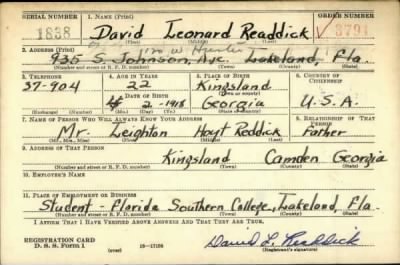 SERIAL NUMBER 1. NAME (Print) ORDER NUMBER
1838 David Leonard Readdick V3791
(First) (Middle) (Last)
2. ADDRESS (Print)
935 S. Johnson, Ave. Lakeland, Fla.
(Number and street or R. F. D. number) (Town) (County) (State)
3. TELEPHONE 4. AGE IN YEARS 5. PLACE OF BIRTH 6. COUNTRY OF CITIZENSHIP
37-904 22 Kingsland
(Town or county)
DATE OF BIRTH
2 - 1918 Georgia U.S.A.
(Exchange) (Number) (Mo.) (Day) (Yr.) (State or country)
7. NAME OF PERSON WHO WILL ALWAYS KNOW YOUR ADDRESS 8. RELATIONSHIP OF THAT PERSON
Mr. Leighton Hoyt Reddick Father
(Mr., Mrs., Miss) (First) (Middle) (Last)
9. ADDRESS OF THAT PERSON
Kingsland Camden Georgia
(Number and street or R. F. D. number) (Town) (County) (State)
10. EMPLOYER'S NAME
11. PLACE OF EMPLOYMENT OR BUSINESS
Student - Florida Southern College, Lakeland, Fla.
(Number and street or R. F. D. number) (Town) (County) (State)
I AFFIRM THAT I HAVE VERIFIED ABOVE ANSWERS AND THAT THEY ARE TRUE.
REGISTRATION CARD
D. S. S. Form 1 (over) 16-17105 David L. Readdick
(Registrant's signature)